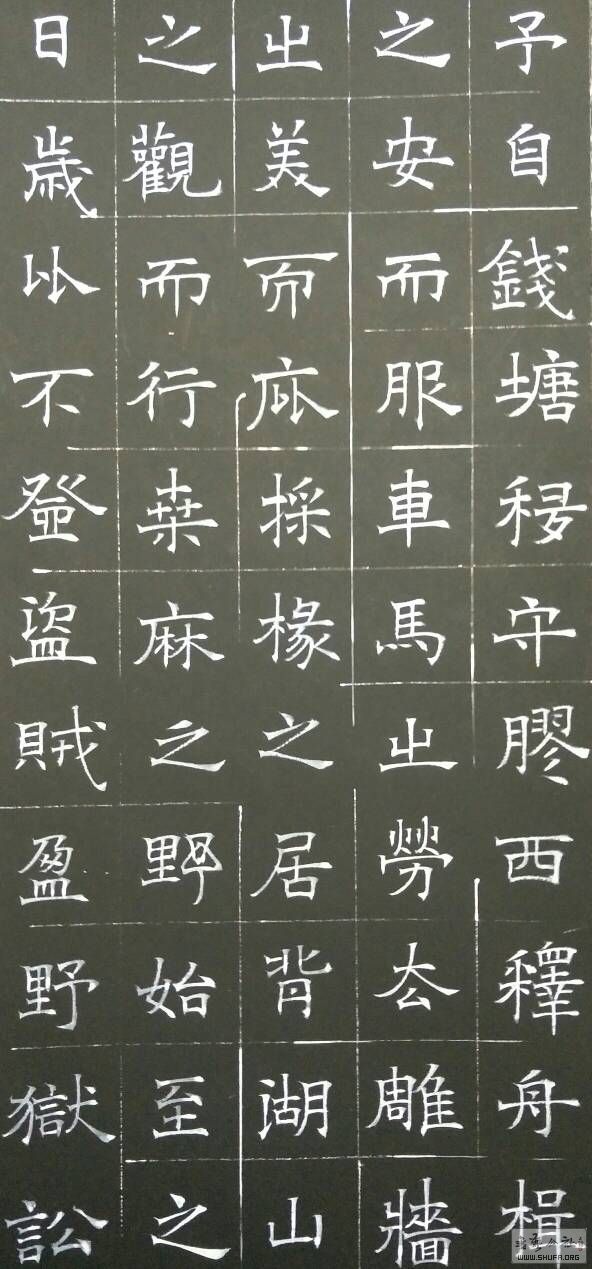 予自錢塘移守膠西釋舟楫
之安而服車馬之勞去雕牆
之美而庇採椽之居背湖山
之觀而行桑麻之野始至之
日歲比不登盜賊盈野獄訟
WWW.SHUFA.ORG